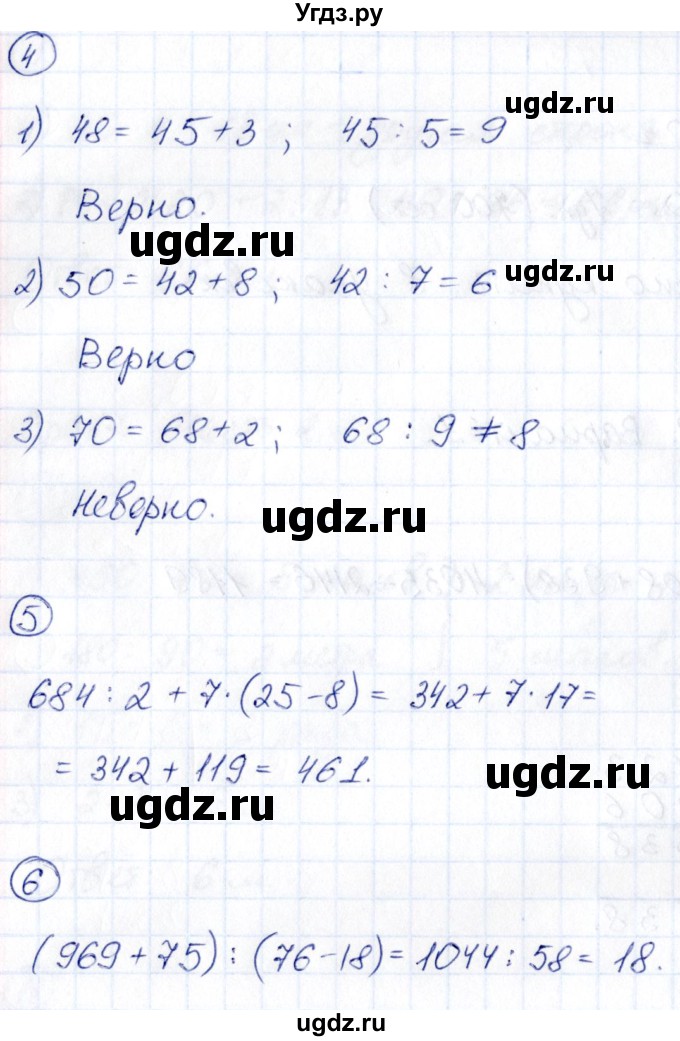 Угдз.ру
4
1) 48 = 45 + 3 ; 45 : 5 = 9
ugdz.ru
Верно.
ugdz.ru
2) 50 = 42 + 8 ; 42 : 7 = 6
ugdz.ru
Верно
3) 70 = 68 + 2 ; 68 : 9 ≠ 8
Неверно.
ugdz.ru
5
684 : 2 + 7 · (25 - 8) = 342 + 7 · 17 =
= 342 + 119 = 461.
ugdz.ru
ugdz.ru
6
(969 + 75) : (76 - 18) = 1044 : 58 = 18.
ugdz.ru